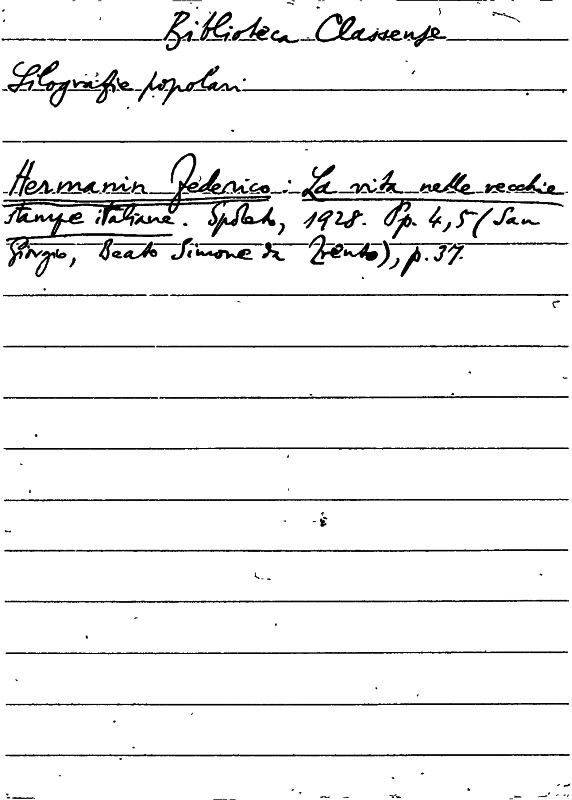 Biblioteca Classense
Silografie popolari
Hermanin Federico: La vita nelle vecchie
stampe italiane. Spoleto, 1928. Pp. 4,5 (San
Giorgio, Beato Simone da Trento), p. 37.